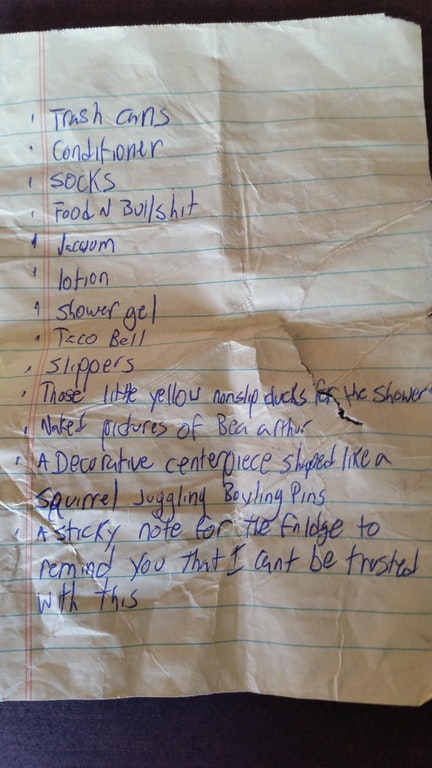 · Trash cans
· Conditioner
· SOCKS
· Food N Bullshit
· Vacuum
· lotion
· Shower gel
· Taco Bell
· Slippers
· Those little yellow nonslip ducks for the shower
· Naked pictures of Bea arthur
· A Decorative centerpiece shaped like a
Squirrel Juggling Bowling Pins
· A sticky note for the fridge to
remind you that I cant be trusted
with this